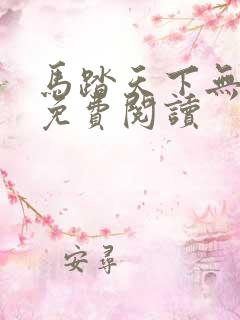 馬踏天下無
免費閱讀
安尋